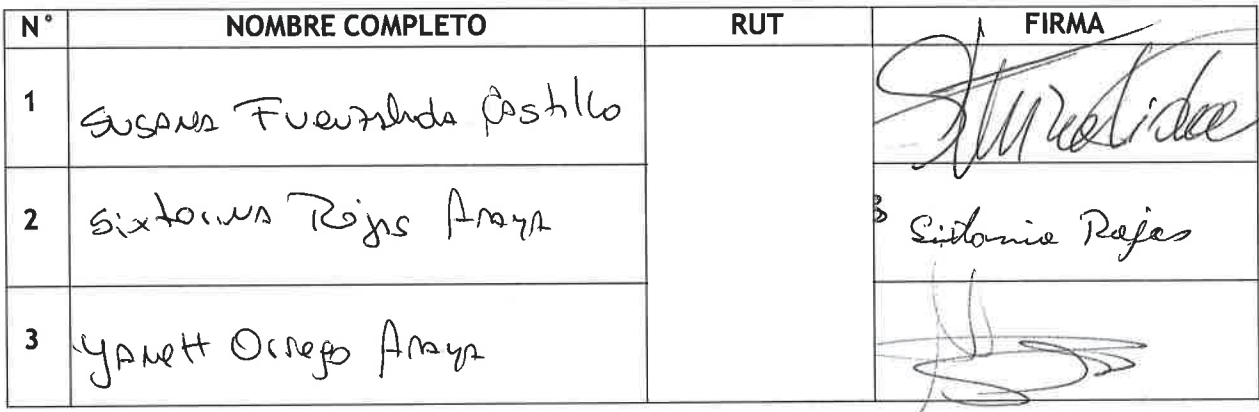 N° NOMBRE COMPLETO RUT FIRMA
1 Susana Fuenzalida Castillo
2 Sixtorina Rojas Araya Sixtorina Rojas
3 Yanett Orrego Araya